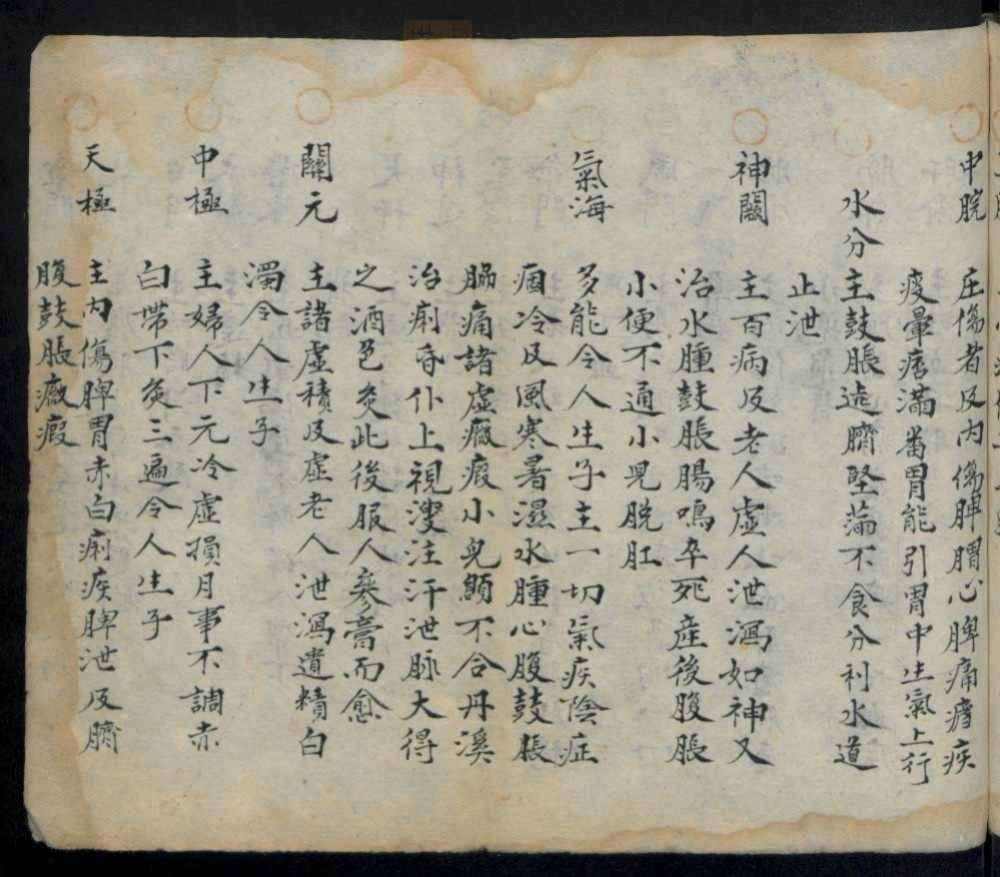 中脘 主傷者及内傷脾胃心脾痛瘧疾
痰暈痞滿翻胃能引胃中生氣上行
水分 主鼓脹遶臍堅滿不食分利水道
止泄
神闕 主百病及老人虛人泄瀉如神又
治水腫鼓脹腸鳴卒死産後腹脹
小便不通小児脱肛
氣海 多能令人生子主一切氣疾陰症
痼冷及風寒暑濕水腫心腹鼓脹
脇痛諸虛癥瘕小兒顖不合丹溪
治痢昏仆上視溲注汗泄脉大得
之酒色灸此後服人參膏而愈
關元 主諸虛積及虛老人泄瀉遺精白
濁令人生子
中極 主婦人下元冷虛損月事不調赤
白帶下灸三遍令人生子
天樞 主内傷脾胃赤白痢疾脾泄及臍
腹鼓脹癥瘕